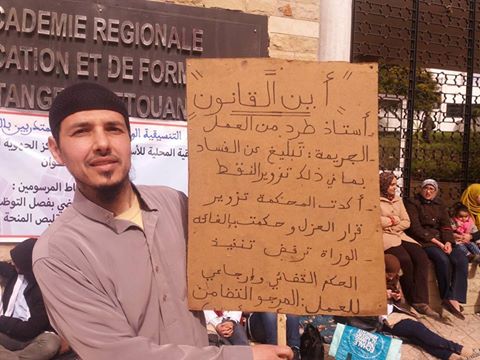 CADEMIE REGIONALE
CATION ET DE FORM
TANGE TETOUAN
التنسيقية
المتدربين
قية المحلية
الجهوية
وان
قاط المرسومين :
ضي بفصل التوظ
ليص المنحة
"أين القانون"
أستاذ طرد من العمل
الجريمة : تبليغ عن الفساد
بما في ذلك تزوير النقط
أكدت المحكمة تزوير
قرار العزل وحكمت بإلغائه
الوزارة ترفض تنفيذ
الحكم القضائي وإرجاعي
للعمل : المرجو التضامن